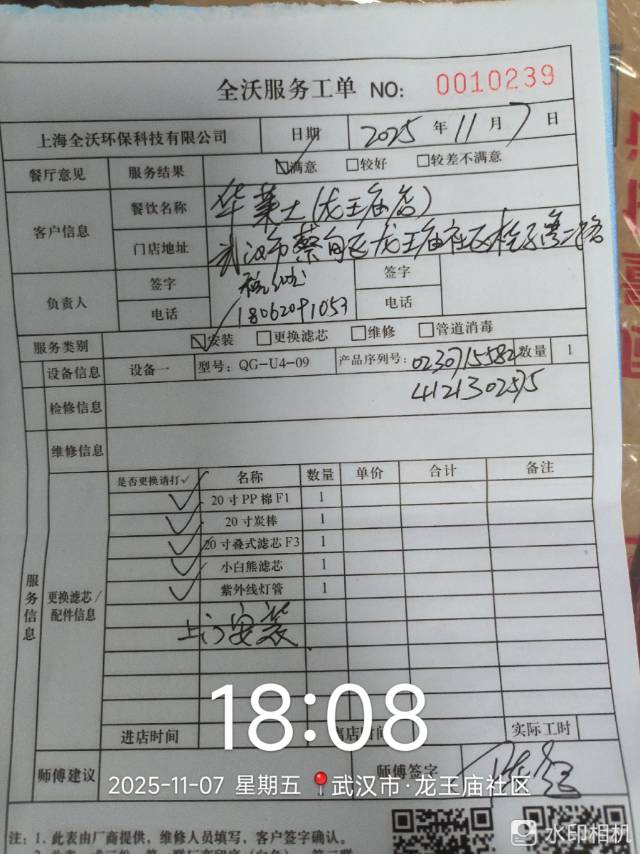 全沃服务工单 NO: 0010239
上海全沃环保科技有限公司 日期 2025年11月7日
餐厅意见 服务结果 ☑满意 □较好 □较差不满意
客户信息 餐饮名称 华莱士(龙王庙店)
门店地址 武汉市蔡甸区龙王庙社区
负责人 签字 签字
电话 18062091053 电话
服务类别 ☑安装 □更换滤芯 □维修 □管道消毒
设备信息 设备一 型号: QG-U4-09 产品序列号: 0230715582 数量 1
4121302575
检修信息
维修信息
服务信息 更换滤芯/配件信息
是否更换请打✓ 名称 数量 单价 合计 备注
✓ 20寸PP棉F1 1
✓ 20寸炭棒 1
✓ 20寸叠式滤芯F3 1
✓ 小白熊滤芯 1
✓ 紫外线灯管 1
上门安装
18:08
进店时间 离店时间 实际工时
师傅建议 师傅签字
2025-11-07 星期五 武汉市·龙王庙社区
注: 1. 此表由厂商提供，维修人员填写，客户签字确认。
水印相机